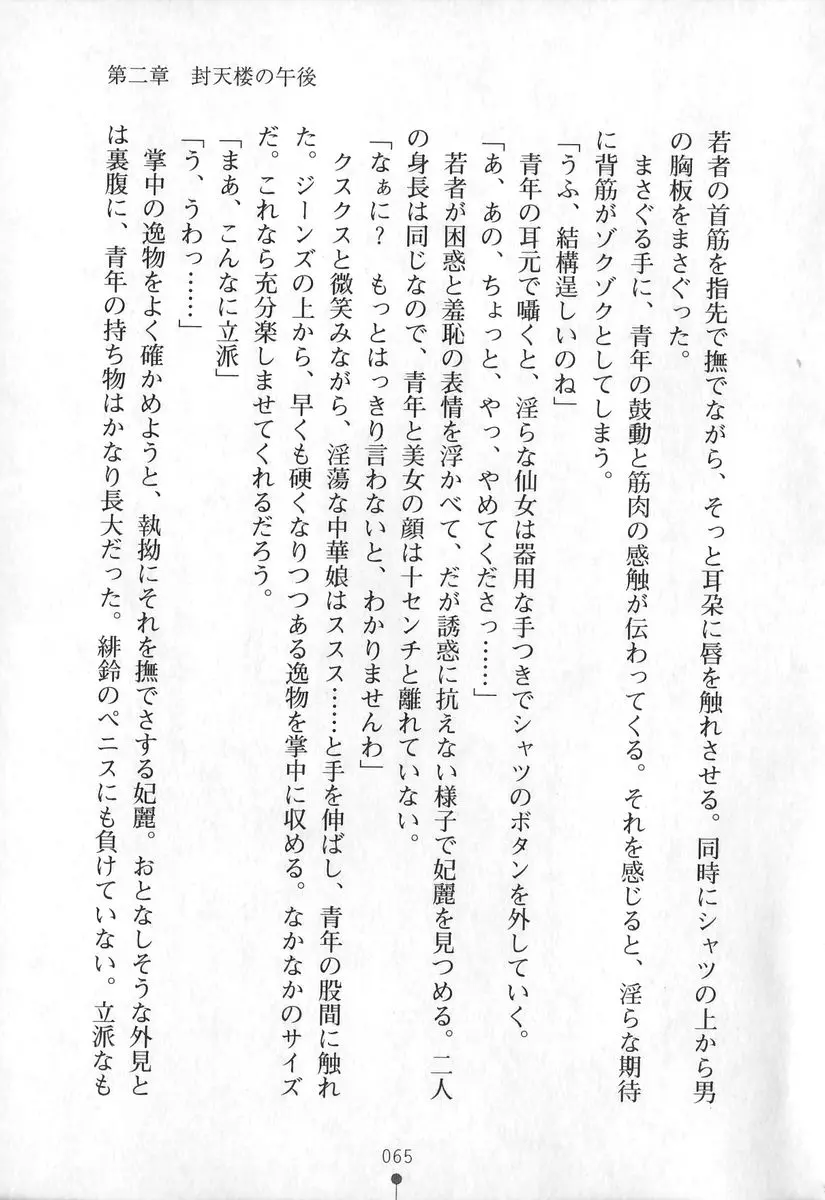 第二章　封天楼の午後
若者の首筋を指先で撫でながら、そっと耳朶に唇を触れさせる。同時にシャツの上から男
の胸板をまさぐった。
まさぐる手に、青年の鼓動と筋肉の感触が伝わってくる。それを感じると、淫らな期待
に背筋がゾクゾクとしてしまう。
「うふ、結構逞しいのね」
青年の耳元で囁くと、淫らな仙女は器用な手つきでシャツのボタンを外していく。
「あ、あの、ちょっと、やっ、やめてくださっ……」
若者が困惑と羞恥の表情を浮かべて、だが誘惑に抗えない様子で妃麗を見つめる。二人
の身長は同じなので、青年と美女の顔は十センチと離れていない。
「なぁに？　もっとはっきり言わないと、わかりませんわ」
クスクスと微笑みながら、淫蕩な中華娘はススス……と手を伸ばし、青年の股間に触れ
た。ジーンズの上から、早くも硬くなりつつある逸物を掌中に収める。なかなかのサイズ
だ。これなら充分楽しませてくれるだろう。
「まぁ、こんなに立派」
「う、うわっ……」
掌中の逸物をよく確かめようと、執拗にそれを撫でさする妃麗。おとなしそうな外見と
は裏腹に、青年の持ち物はかなり長大だった。緋鈴のペニスにも負けていない。立派なも
065